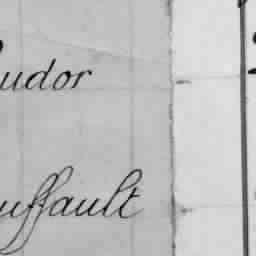 udor
uffault